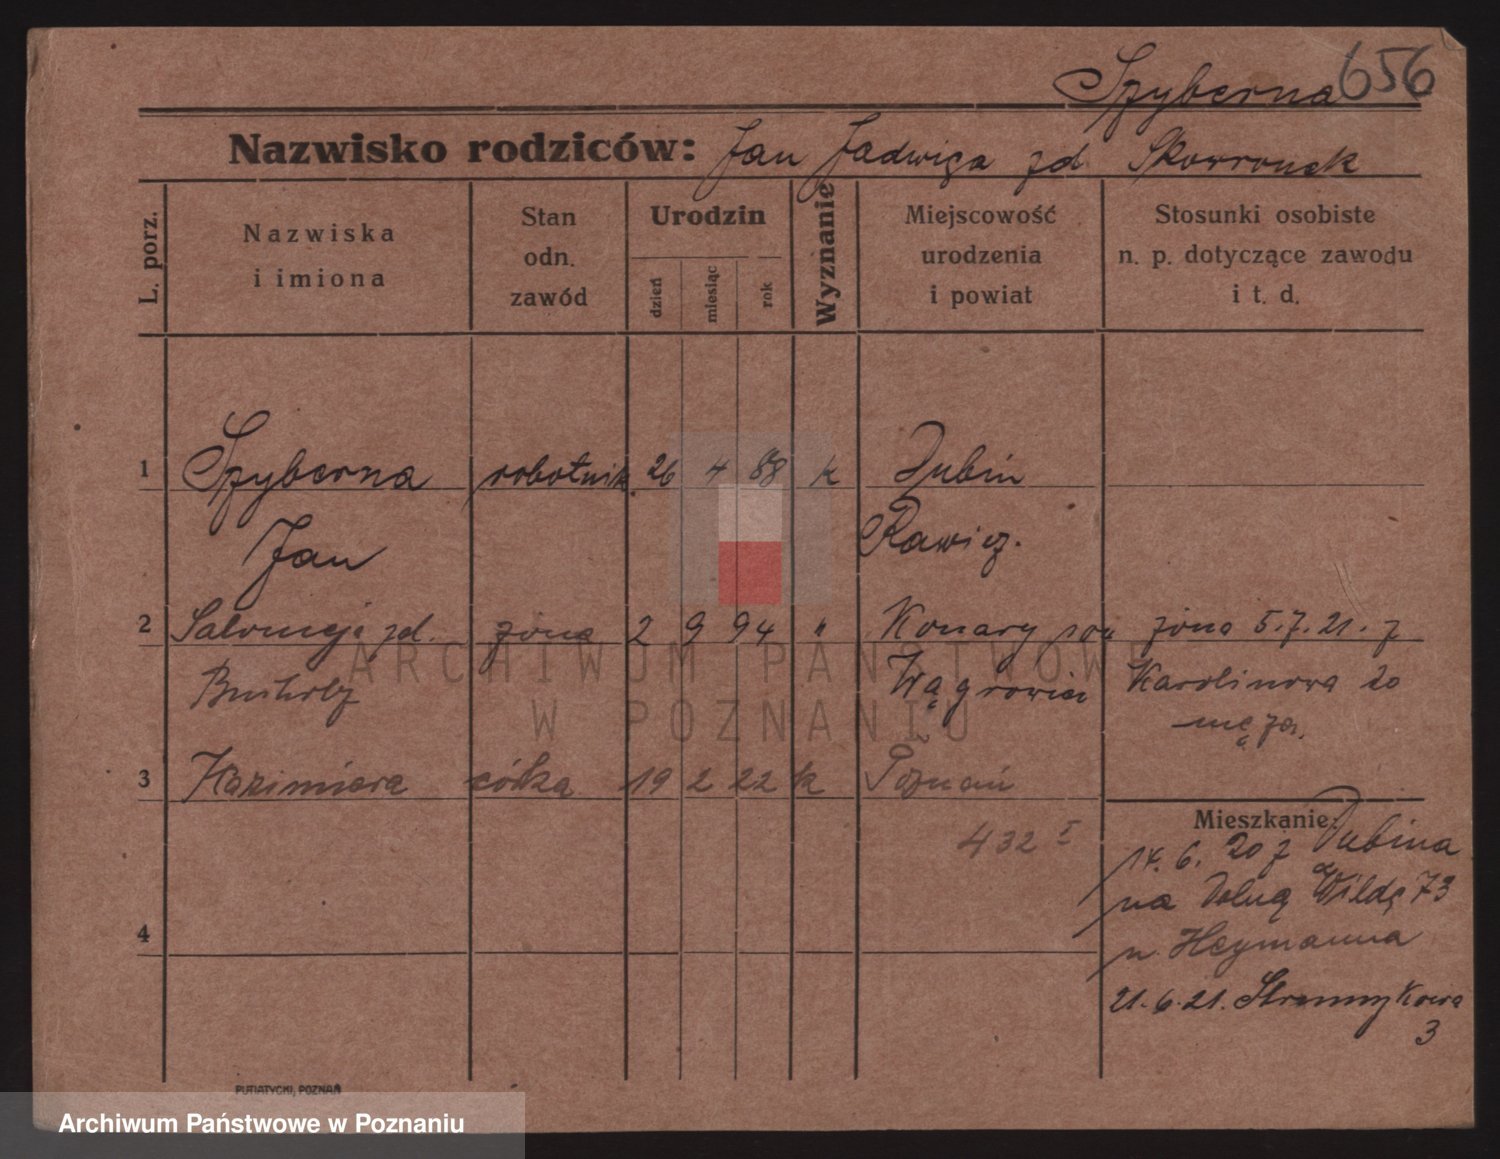 Szyberna 656
Nazwisko rodziców: Jan Jadwiga zd Skowronek
L. porz.
Nazwiska
i imiona
Stan
odn.
zawód
Urodzin
dzień
miesiąc
rok
Wyznanie
Miejscowość
urodzenia
i powiat
Stosunki osobiste
n. p. dotyczące zawodu
i t. d.
1 Szyberna robotnik 26 4 88 k Dubin
Jan Rawicz.
2 Salomeja zd. żona 2 9 94 " Konary żona 5.7.21. z
Wągrowiec Karolinowa 20
męża.
3 Kazimiera córka 19 2 22 k Poznań
432 I
Mieszkanie:
14. 6. 20 z Dubina
na Dolną Wildę 73
u. Heymanna
21.6.21. 
3
4
PUTIATYCKI, POZNAŃ
ARCHIWUM PAŃSTWOWE
W POZNANIU
Archiwum Państwowe w Poznaniu